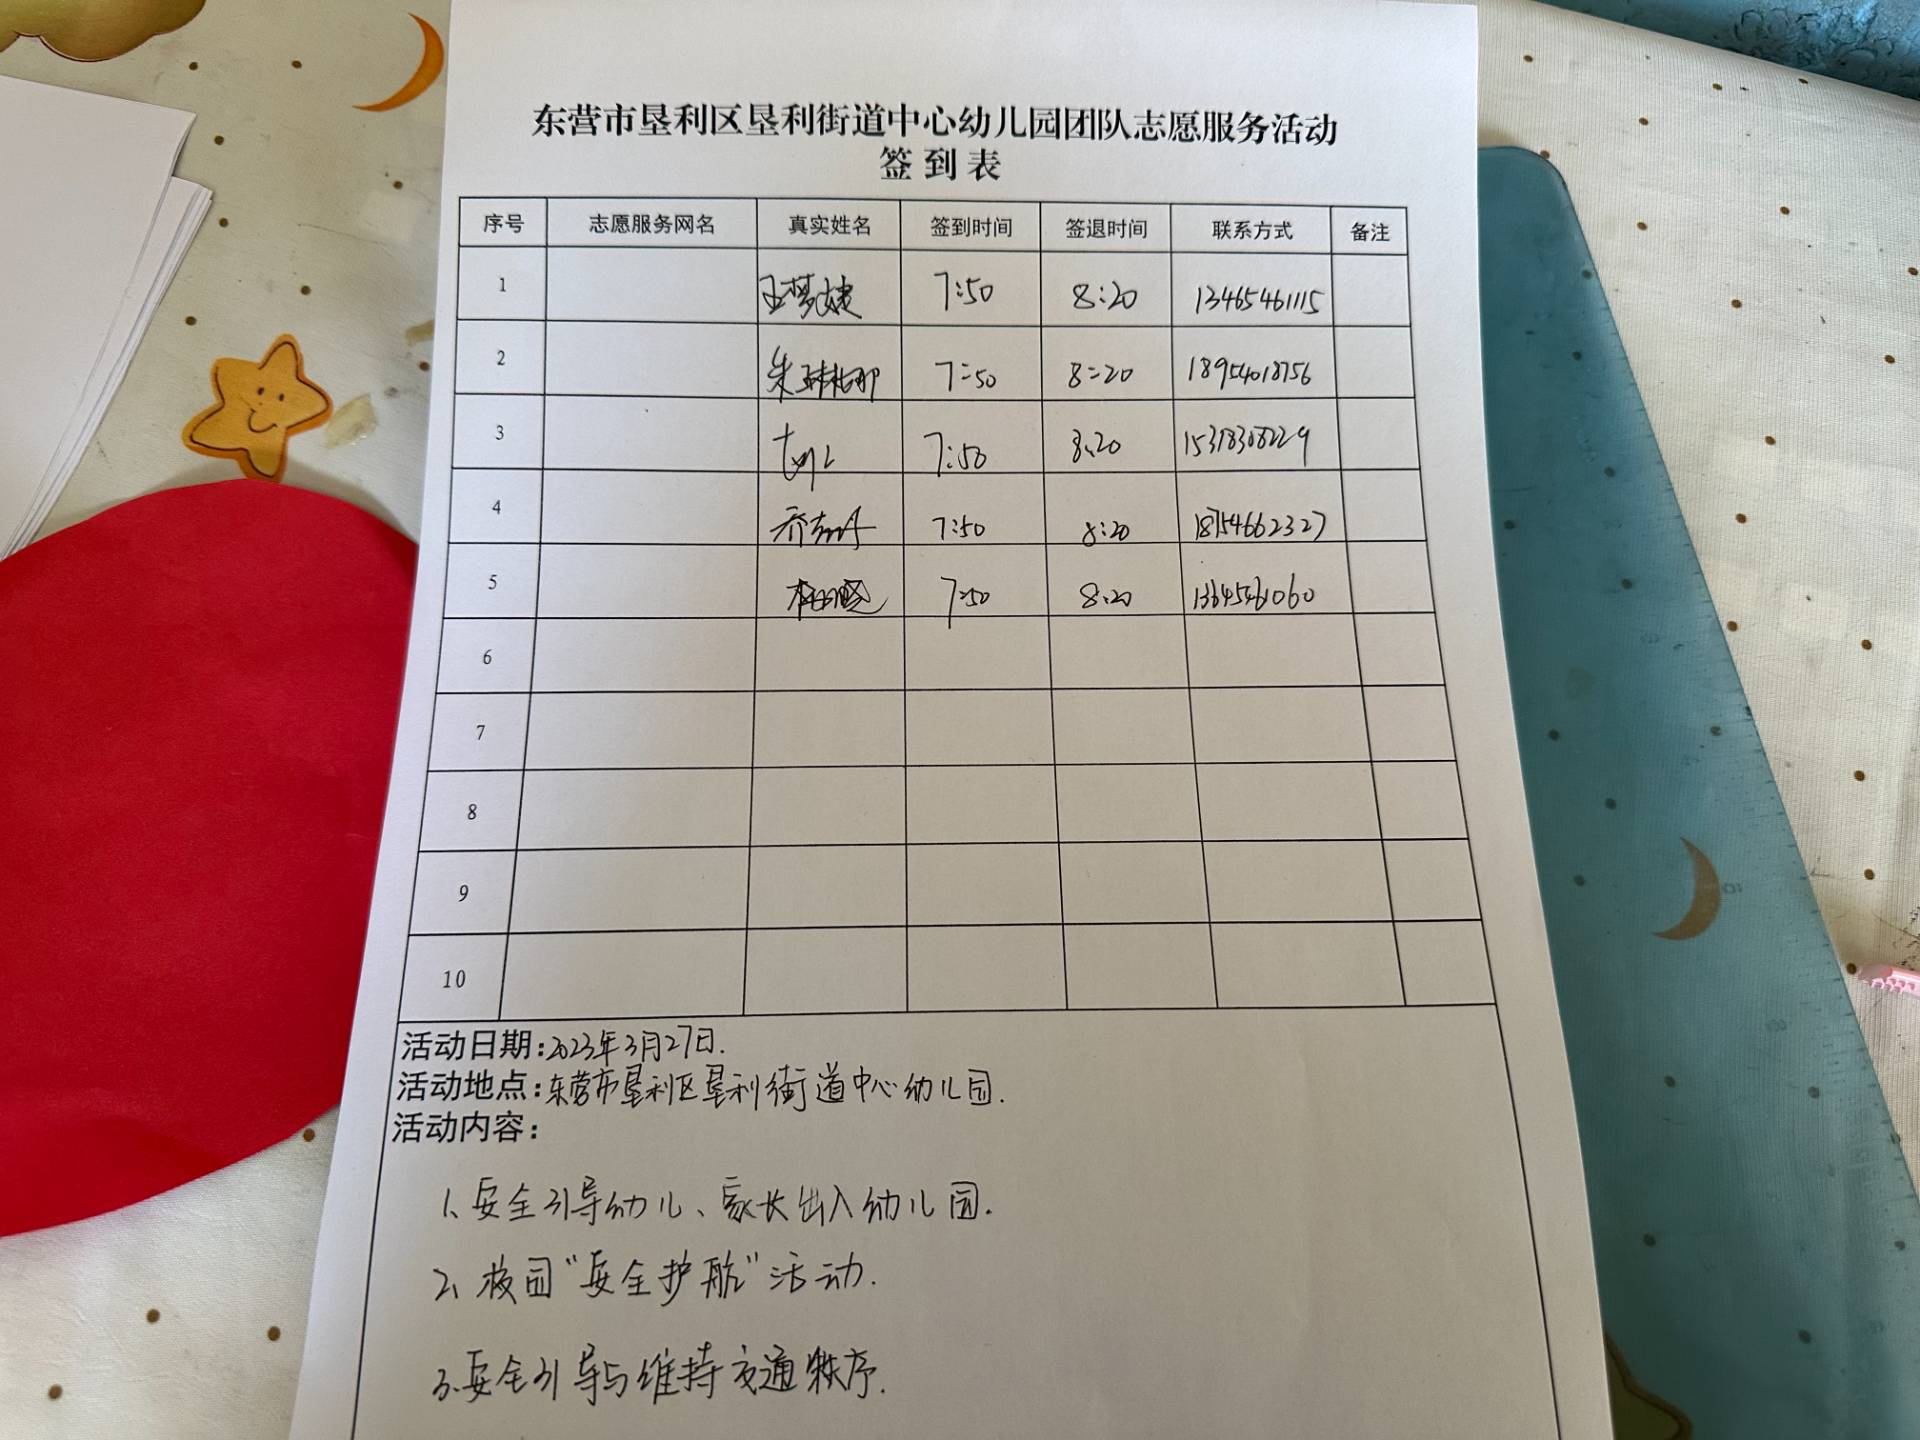 东营市垦利区垦利街道中心幼儿园团队志愿服务活动
签到表
序号 志愿服务网名 真实姓名 签到时间 签退时间 联系方式 备注
1 王梦婕 7:50 8:20 13465461115
2 朱琳娜 7:50 8:20 18954018756
3 7:50 8:20 15318308229
4 乔 7:50 8:20 18754662327
5 7:50 8:20 13645461060
6
7
8
9
10
活动日期:2023年3月27日.
活动地点:东营市垦利区垦利街道中心幼儿园.
活动内容:
1、安全引导幼儿、家长出入幼儿园.
2、校园“安全护航”活动.
3、安全引导与维持交通秩序.